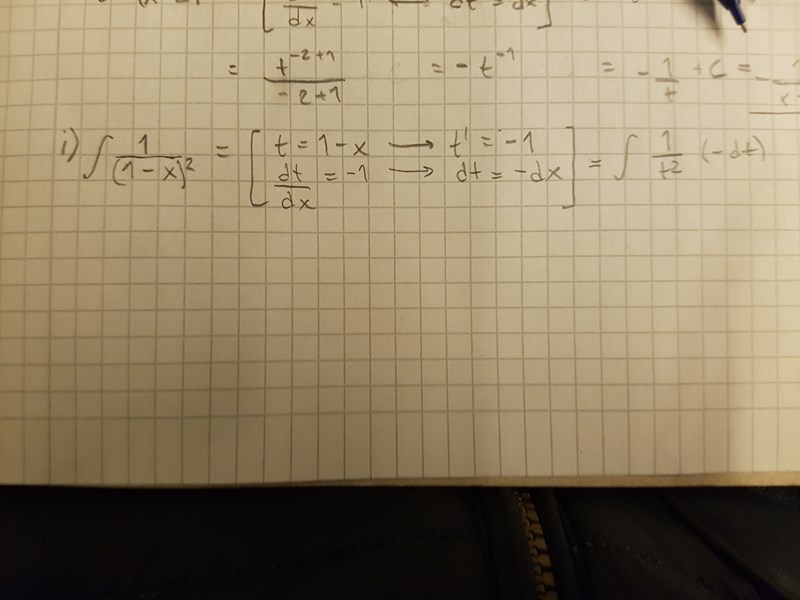 dx
= t^{-2+1} / -2+1 = -t^{-1} = - 1/t + C = -
i) ∫ 1/(1-x)² = [ t = 1-x → t' = -1
dt/dx = -1 → dt = -dx ] = ∫ 1/t² (-dt)